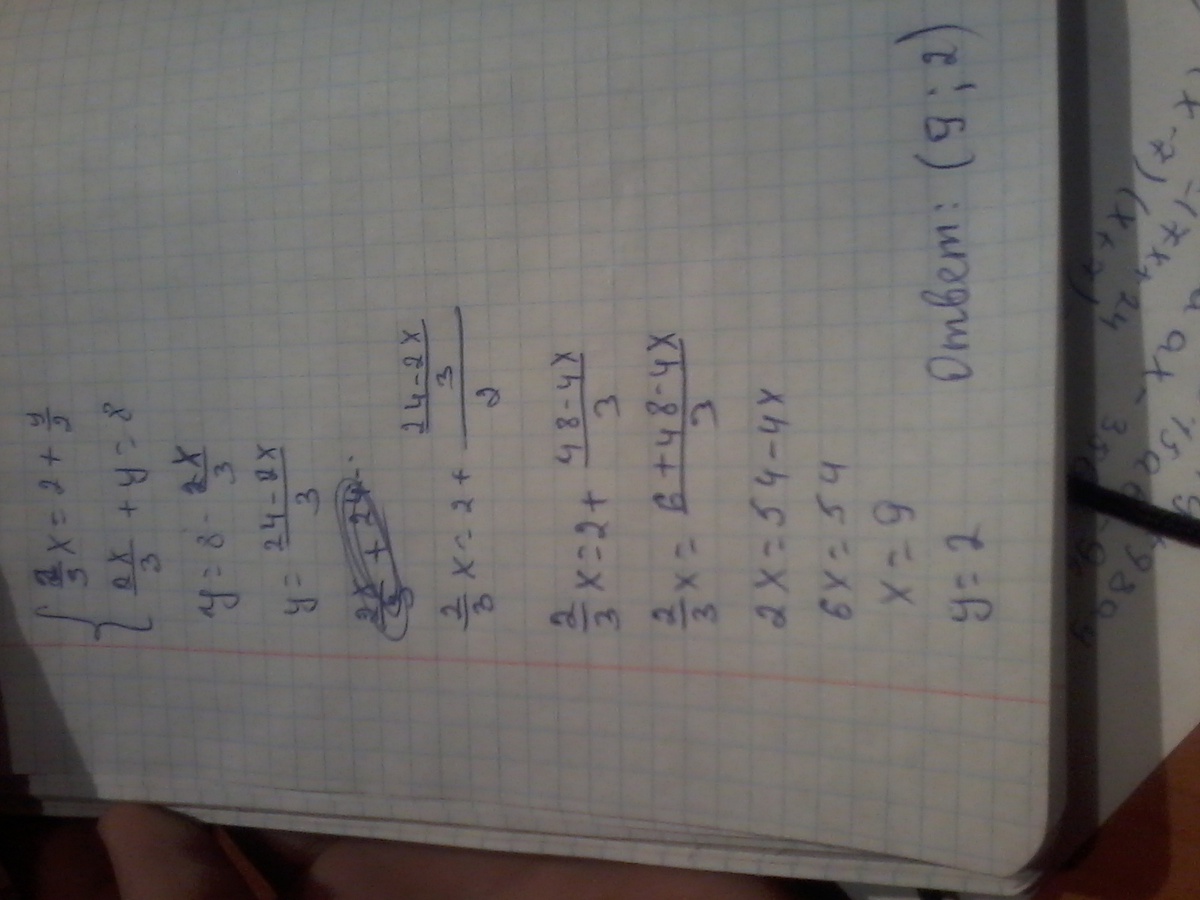 2/3 x = 2 + y/2
2x/3 + y = 8
y = 8 - 2x/3
y = 24-2x/3
2/3 x = 2 + 24-2x/3/2
2/3 x = 2 + 48-4x/3
2/3 x = 6+48-4x/3
2x = 54-4x
6x = 54
x = 9
y = 2 Ответ: (9; 2)